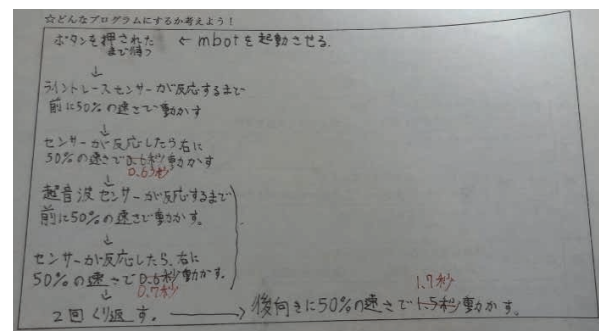 ☆どんなプログラムにするか考えよう！
ボタンを押された ← mbotを起動させる.
まで待つ
↓
ライントレースセンサーが反応するまで
前に50%の速さで動かす
↓
センサーが反応したら右に
50%の速さで0.6秒動かす
0.65秒
↓
超音波センサーが反応するまで
前に50%の速さで動かす。
↓
センサーが反応したら、右に
50%の速さで0.6秒動かす。
0.7秒
↓
1.7秒
2回くり返す。 → 後向きに50%の速さで1.5秒動かす。